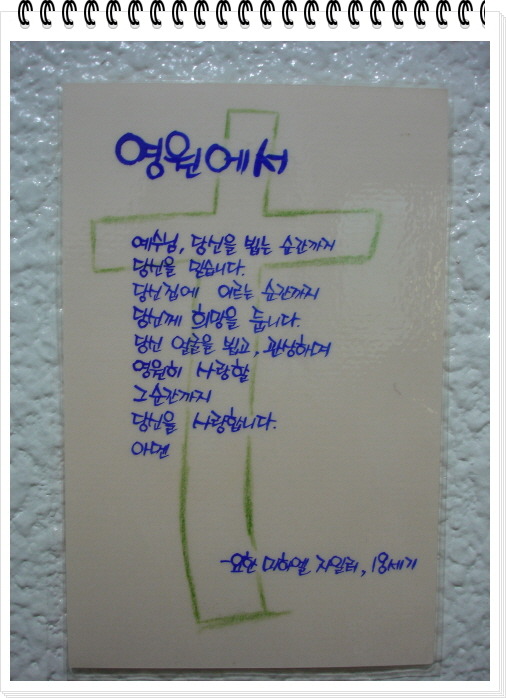 영원에서
예수님, 당신을 뵙는 순간까지
당신을 믿습니다.
당신집에 이르는 순간까지
당신께 희망을 둡니다.
당신 얼굴을 뵙고, 관상하며
영원히 사랑할
그 순간까지
당신을 사랑합니다.
아멘
-요한 미하엘 자일러, 18세기